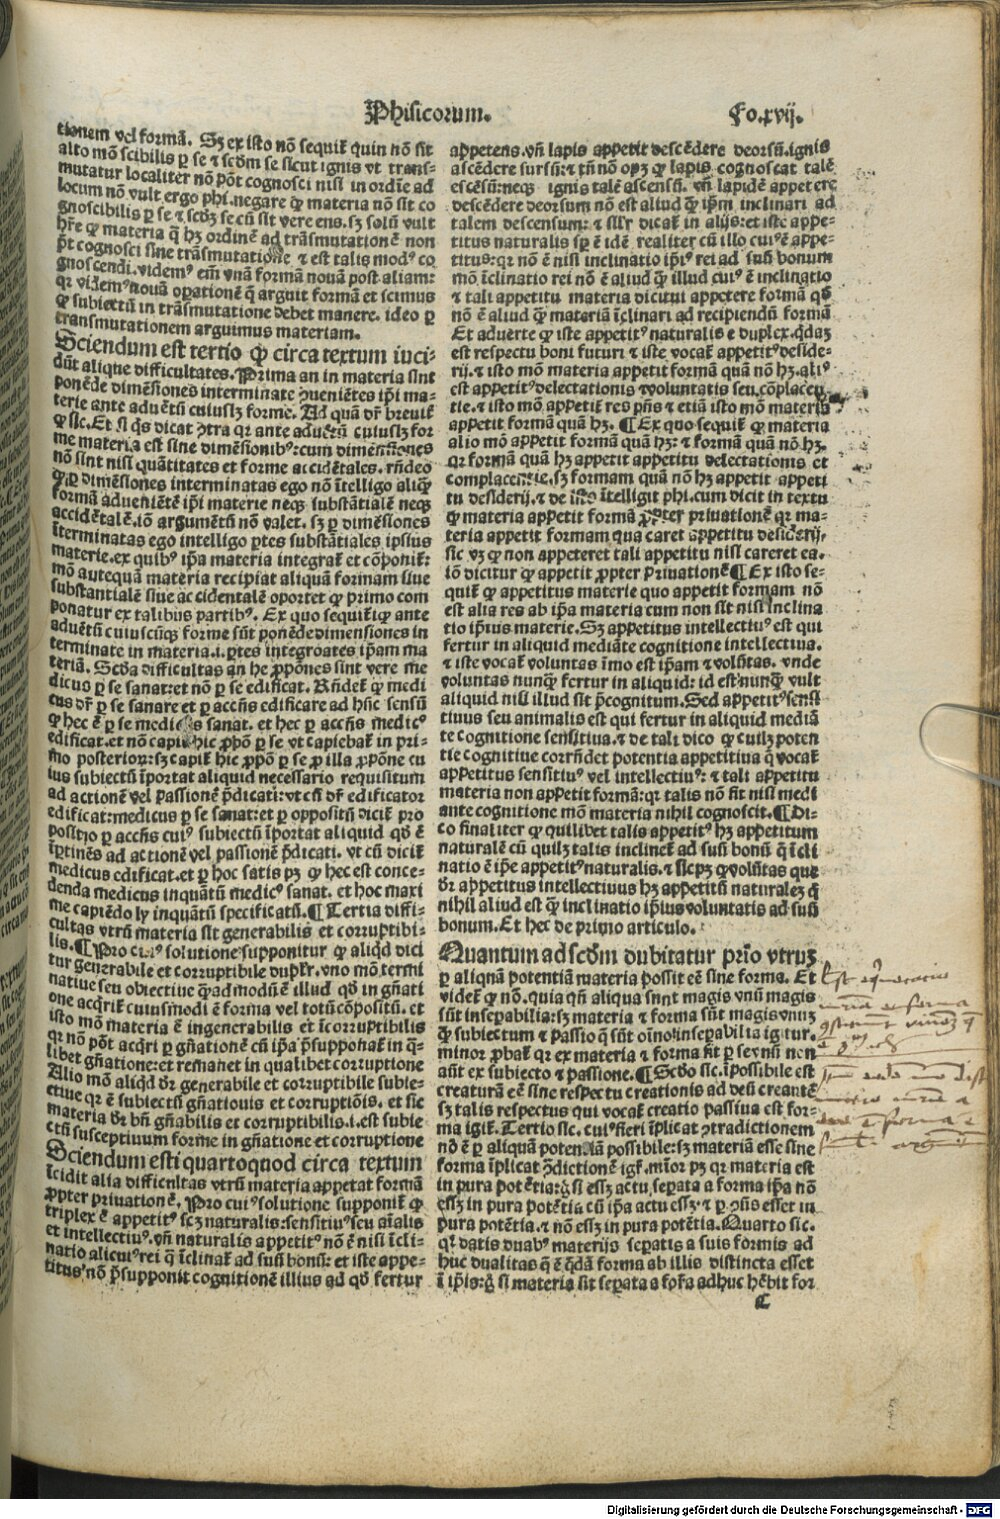 Phisicorum.
Fo.xvij.
tionem vel formā. Sꝫ ex isto nō sequiť quin nō sit
alio mō scibilis ꝑ se ⁊ scdm se sicut ignis vt trans-
mutatur localiter nō pōt cognosci nisi in ordīe ad
locum nō vult ergo phi. negare ꝙ materia nō sit co
gnoscibilis ꝑ se ⁊ scdꝫ se cū sit vere ens. sꝫ solū vult
hr̄e ꝙ materia q̄ hꝫ ordinē ad trāsmutationē non
pt̄ cognosci sine trāsmutatiōe ⁊ est talis modꝰ co
gnoscendi. videmꝰ em̄ vnā formā nouā post aliam:
qr videmꝰ nouā oꝑationē q̄ arguit formā et scimus
ꝙ subiectū in trāsmutatione debet manere. ideo ꝑ
transmutationem arguimus materiam.
Sciendum est tertio ꝙ circa textum inci-
dūt alique difficultates. Prima an in materia sint
ponēde dimēsiones interminate ꝯueniētes ip̄i ma-
terie ante aduētū cuiuslꝫ forme. Ad quā dr̄ breuiť
ꝙ sic. Et si q̄s dicat ꝯtra qr ante aduētū cuiuslꝫ for
me materia est sine dimēsionibꝰ: cum dimēsiones
nō sint nisi quātitates et forme accidētales. rn̄deo
ꝙ ꝑ dimēsiones interminatas ego nō ītelligo aliq̄
formā adueniētē ip̄i materie neqꝫ substātialē neqꝫ
accidētalē. iō argumētū nō valet. sꝫ ꝑ dimēsiones
īterminatas ego intelligo ꝑtes substātiales ipsius
materie. ex quibꝰ ip̄a materia integrať et cōponiť:
mō anteq̄uā materia recipiat aliquā formam siue
substantialē siue accidentalē oportet ꝙ primo com
ponatur ex talibus partibꝰ. Ex quo sequiť qꝫ ante
aduētū cuiuscūqꝫ forme sūt ponēde dimensiones in
terminate in materia. i. ꝑtes integrātes ip̄am ma
teriā. Scd̄a difficultas an he ꝓpōnes sint vere me
dicus ꝑ se sanat: et nō ꝑ se edificat. Rn̄deť ꝙ medi
cus dr̄ ꝑ se sanare et ꝑ accn̄s edificare ad hūc sensū
ꝙ hec ē ꝑ se medicus sanat. et hec ꝑ accn̄s medicꝰ
edificat. et nō capiť hic ꝓpō ꝑ se vt capiebať in pri-
mo posteriorꝫ: sꝫ capiť hic ꝓpō ꝑ se ꝓ illa ꝓpōne cu
ius subiectū īportat aliquid necessario requisitum
ad actionē vel passionē p̄dicati: vt cū dr̄ edificator
edificat: medicus ꝑ se sanat: et ꝑ oppositū diciť pro
positio ꝑ accn̄s cuiꝰ subiectū īportat aliquid qd̄ ē
īꝑtinēs ad actionē vel passionē p̄dicati. vt cū diciť
medicus edificat. et ꝑ hoc satis pꝫ ꝙ hec est conce-
denda medicus inquātū medicꝰ sanat. et hoc maxi
me capiēdo ly inquātū specificatū. ¶ Tertia diffi-
cultas vtrū materia sit generabilis et corruptibi-
lis. ¶ Pro cuiꝰ solutione supponitur ꝙ aliqd dici
tur generabile et corruptibile dupťr. vno mō termi
natiue seu obiectiue q̄admodū ē illud qd̄ in gn̄ati
one acq̄riť cuiusmodi ē forma vel totū cōpositū. et
isto mō materia ē ingenerabilis et īcorruptibilis
qr nō pōt acq̄ri ꝑ gn̄ationē cū ip̄a p̄supponať in q̄-
libet gn̄atione: et remanet in qualibet corruptione
Alio mō aliqd dr̄ generabile et corruptibile subie-
ctiue qr ē subiectū gn̄ationis et corruptiōis. et sic
materia dr̄ bn̄ gn̄abilis et corruptibilis. i. est subie
ctū susceptiuum forme in gn̄atione et corruptione
Sciendum est quarto quod circa textum
īcidit alia difficultas vtrū materia appetat formā
ꝓpter priuationē. Pro cuiꝰ solutione supponiť ꝙ
triplex ē appetitꝰ scꝫ naturalis: sensitiuꝰ seu aīalis
et intellectiuꝰ. vn̄ naturalis appetitꝰ nō ē nisi īcli-
natio alicuiꝰ rei q̄ īclinať ad suū bonū: et iste appe-
titus nō p̄supponit cognitionē illius ad qd̄ fertur
appetens. vn̄ lapis appetit descēdere deorsū. ignis
ascēdere sursū: ⁊ tn̄ nō opꝫ ꝙ lapis cognoscat talē
descēsū: neqꝫ ignis talē ascensū. vn̄ lapidē appetere
descēdere deorsum nō est aliud ꝙ ip̄m inclinari ad
talem descensum: ⁊ silr dicať in alijs: et iste appe-
titus naturalis sꝑ ē idē realiter cū illo cuiꝰ ē appe-
titus: qr nō ē nisi inclinatio ip̄iꝰ rei ad suū bonum
mō īclinatio rei nō ē aliud ꝙ illud cuiꝰ ē inclinatio
⁊ tali appetitu materia dicitur appetere formā qd̄
nō ē aliud ꝙ materiā īclinari ad recipiendū formā
Et aduerte ꝙ iste appetitꝰ naturalis ē duplex. q̄dā
est respectu boni futuri ⁊ iste vocať appetitꝰ deside-
rij. ⁊ isto mō materia appetit formā quā nō hꝫ. aliꝰ
est appetitꝰ delectationis ⁊ voluntatis seu cōplacen
tie. ⁊ isto mō appetiť res pn̄s ⁊ etiā isto mō materia
appetit formā quā hꝫ. ¶ Ex quo sequiť ꝙ materia
alio mō appetit formā quā hꝫ: ⁊ formā quā nō hꝫ.
qr formā quā hꝫ appetit appetitu delectationis et
complacentie. sꝫ formam quā nō hꝫ appetit appeti
tu desiderij. ⁊ de isto ītelligit phi. cum dicit in textu
ꝙ materia appetit formā ꝓpter priuationē qr ma-
teria appetit formam qua caret appetitu desiderij.
sic vꝫ ꝙ non appeteret tali appetitu nisi careret ea.
iō dicitur ꝙ appetit ꝓpter priuationē ¶ Ex isto se-
quiť ꝙ appetitus materie quo appetit formam nō
est alia res ab ip̄a materia cum non sit nisi inclina
tio ip̄ius materie. Sꝫ appetitus intellectiuꝰ est qui
fertur in aliquid mediāte cognitione intellectiua.
⁊ iste vocať voluntas īmo est ip̄am ⁊ volūtas. vnde
voluntas nunq̄ fertur in aliquid: id est nunq̄ vult
aliquid nisi illud sit p̄cognitum. Sed appetitꝰ sensi
tiuus seu animalis est qui fertur in aliquid mediā
te cognitione sensitiua. ⁊ de tali dico ꝙ cuilꝫ poten
tie cognitiue corrn̄det potentia appetitiua q̄ vocať
appetitus sensitiuꝰ vel intellectiuꝰ: ⁊ tali appetitu
materia non appetit formā: qr talis nō fit nisi medi
ante cognitione mō materia nihil cognoscit. ¶ Di-
co finaliter ꝙ quilibet talis appetitꝰ hꝫ appetitum
naturalē cū quilꝫ talis inclineť ad suū bonū q̄ īcli
natio ē ip̄e appetitꝰ naturalis. ⁊ sic pꝫ ꝙ volūtas que
dr̄ appetitus intellectiuus hꝫ appetitū naturalez q̄
nihil aliud est ꝙ inclinatio ip̄ius voluntatis ad suū
bonum. Et hec de primo articulo.
Quantum ad scd̄m dubitatur prīo vtruꝫ
ꝑ aliquā potentiā materia possit eē sine forma. Et
videť ꝙ nō. quia qn̄ aliqua sunt magis vnū magis
sūt inseꝑabilia: sꝫ materia ⁊ forma sūt magis vnuꝫ
ꝙ subiectum ⁊ passio q̄ sūt oīno inseꝑabilia igitur.
minor ꝓbať qr ex materia ⁊ forma fit ꝑ se vnū non
aūt ex subiecto ⁊ passione. ¶ Scd̄o sic. īpossibile est
creaturā eē sine respectu creationis ad deū creantē
sꝫ talis respectus qui vocať creatio passiua est for-
ma igiť. Tertio sic. cuiꝰ fieri īplicat ꝯtradictionem
nō ē ꝑ aliquā potentiā possibile: sꝫ materiā esse sine
forma īplicat ꝯdictionē igť. mīor pꝫ qr materia est
in pura potētia: ꝗ̄ si essꝫ actu, seꝑata a forma ip̄a nō
essꝫ in pura potētia cū ip̄a actu essꝫ. ⁊ ꝑ ꝯn̄s esset in
pura potētia. ⁊ nō essꝫ in pura potētia. Quarto sic.
qr datis duabꝰ materijs seꝑatis a suis formis ad
huc dualitas q̄ ē q̄dā forma ab illis distincta esset
ī ip̄is: ꝗ̄ si materia sit seꝑata a forma adhuc hēbit for
c
Digitalisierung gefördert durch die Deutsche Forschungsgemeinschaft - DFG